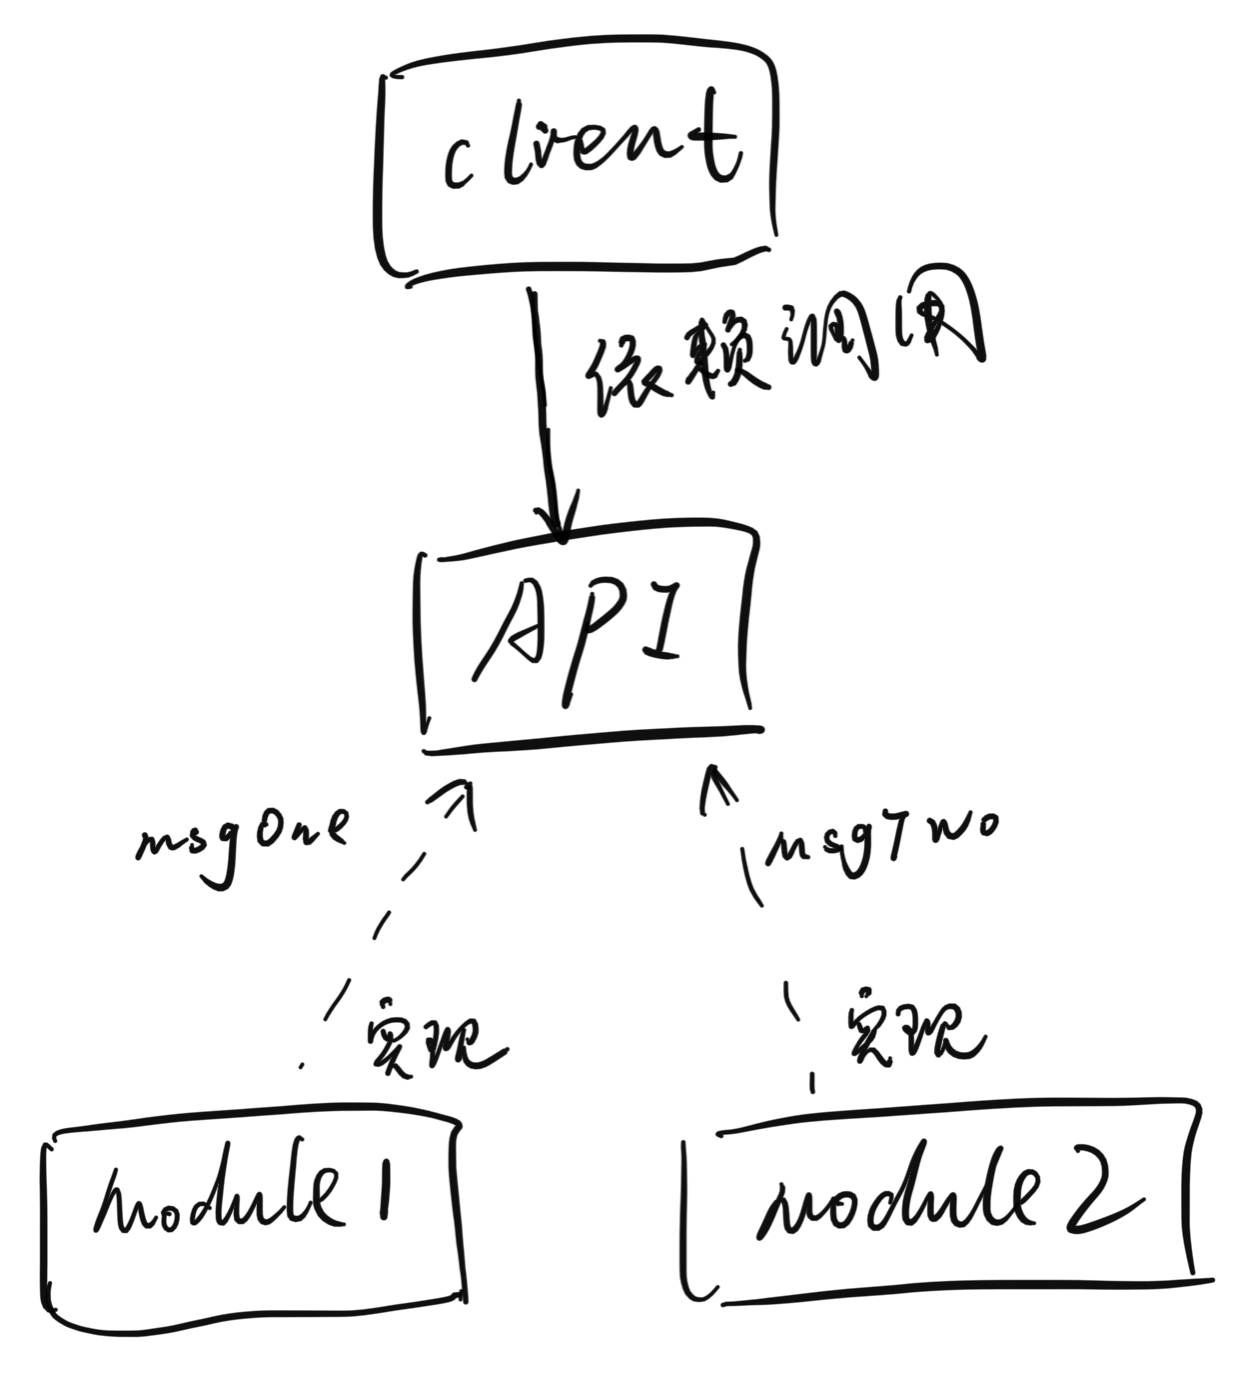 client
依赖调用
API
msgOne
msgTwo
实现
实现
module1
module2